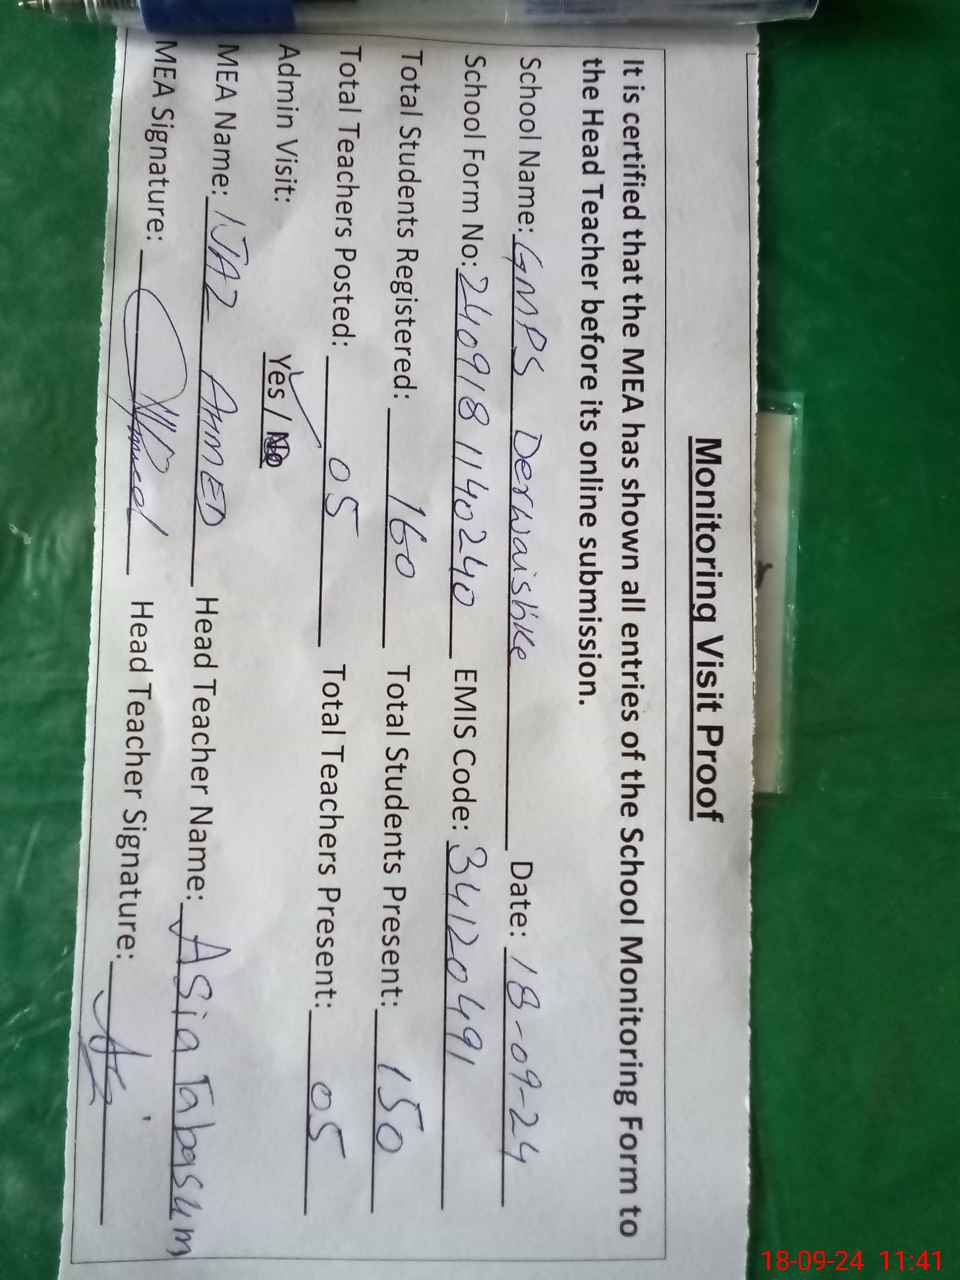 Monitoring Visit Proof
It is certified that the MEA has shown all entries of the School Monitoring Form to
the Head Teacher before its online submission.
School Name: GMPS Derwaishke Date: 18-09-24
School Form No: 240918 1140240 EMIS Code: 34120491
Total Students Registered: 160 Total Students Present: 150
Total Teachers Posted: 05 Total Teachers Present: 05
Admin Visit: Yes / No
MEA Name: IJAZ AHMED Head Teacher Name: Asia Tabasum
MEA Signature: Head Teacher Signature:
18-09-24 11:41